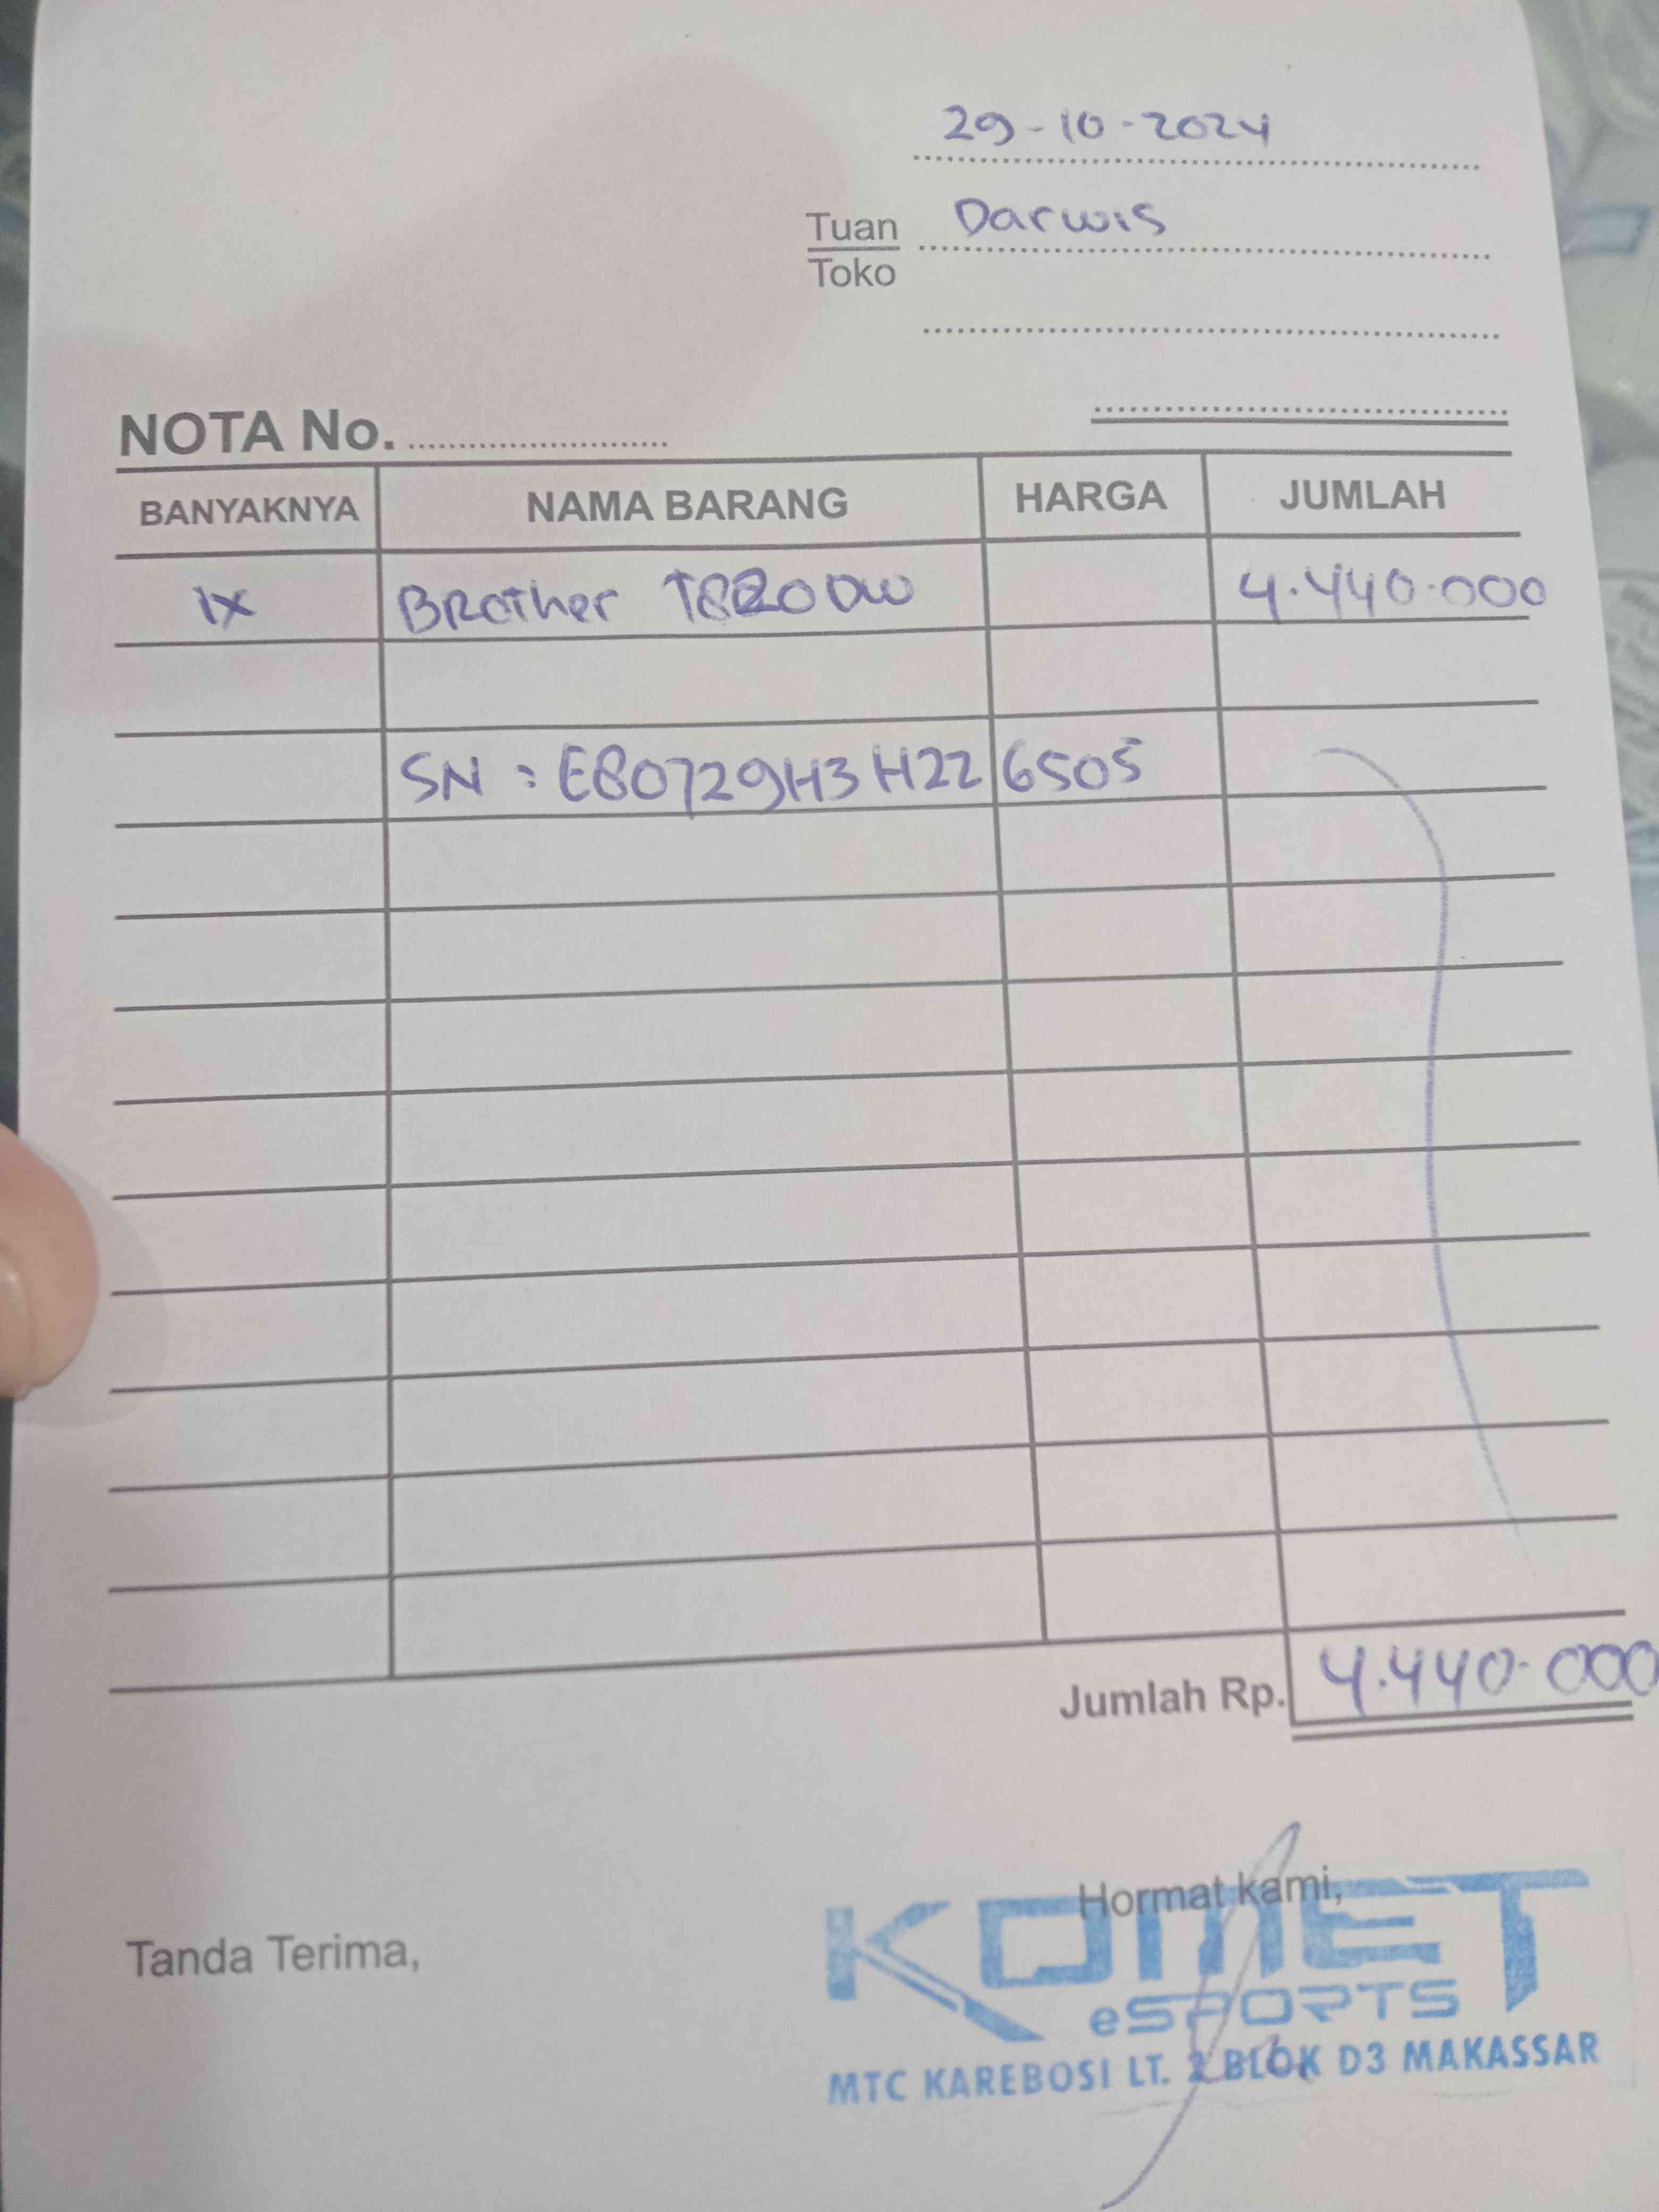 29-10-2024
Tuan Darwis
Toko
NOTA No.
BANYAKNYA NAMA BARANG HARGA JUMLAH
1x Brother T820DW 4.440.000
SN : E80729H3H226505
Jumlah Rp. 4.440.000
Tanda Terima, Hormat kami,
KOMET
eSPORTS
MTC KAREBOSI LT. 2 BLOK D3 MAKASSAR